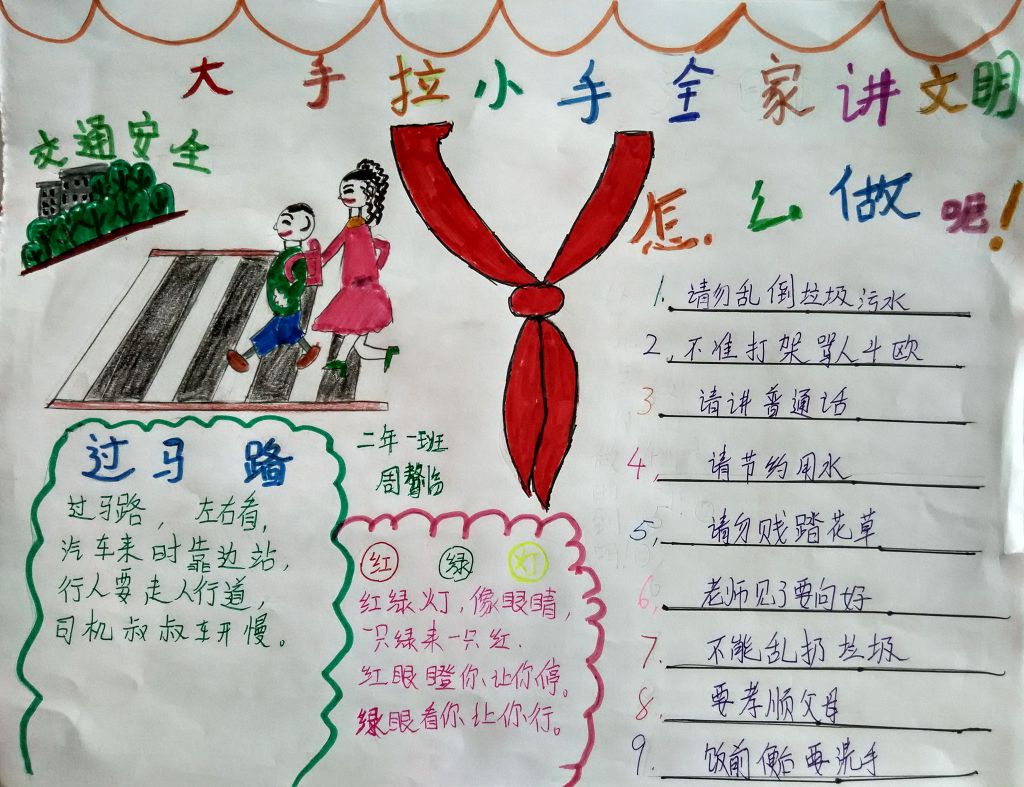 大手拉小手全家讲文明
交通安全
怎么做呢!
1. 请勿乱倒垃圾污水
2. 不准打架骂人斗欧
3 请讲普通话
4, 请节约用水
5, 请勿贱踏花草
6, 老师见了要问好
7. 不能乱扔垃圾
8. 要孝顺父母
9. 饭前便后要洗手
过马路
过马路,左右看,
汽车来时靠边站,
行人要走人行道,
司机叔叔车开慢。
二年一班
周
红绿灯
红绿灯,像眼睛,
一只绿来一只红.
红眼瞪你让你停。
绿眼看你让你行。